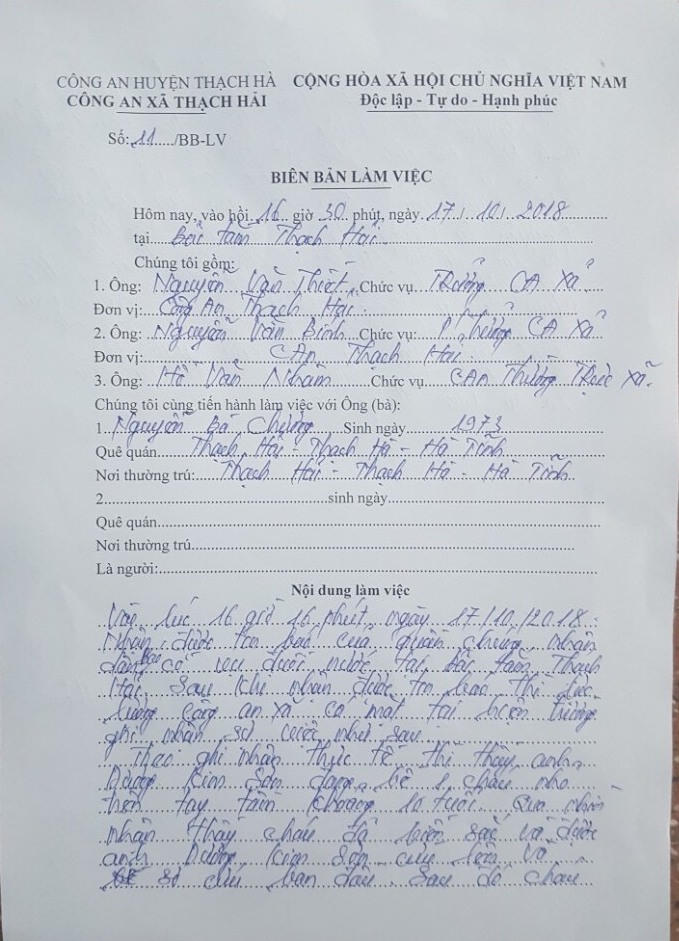 CÔNG AN HUYỆN THẠCH HÀ
CÔNG AN XÃ THẠCH HẢI
CỘNG HÒA XÃ HỘI CHỦ NGHĨA VIỆT NAM
Độc lập - Tự do - Hạnh phúc
Số: 11 /BB-LV
BIÊN BẢN LÀM VIỆC
Hôm nay, vào hồi 16 giờ 30 phút, ngày 17 / 10 / 2018
tại Bãi tắm Thạch Hải
Chúng tôi gồm:
1. Ông: Nguyễn Văn Thiết Chức vụ Trưởng CA xã
Đơn vị: Công An Thạch Hải
2. Ông: Nguyễn Văn Bình Chức vụ: P. Trưởng CA xã
Đơn vị: CAn Thạch Hải
3. Ông: Hồ Văn Nhâm Chức vụ CAn Thường Trực xã
Chúng tôi cùng tiến hành làm việc với Ông (bà):
1 Nguyễn Bá Chương Sinh ngày 1973
Quê quán Thạch Hải - Thạch Hà - Hà Tĩnh
Nơi thường trú: Thạch Hải - Thạch Hà - Hà Tĩnh
2 sinh ngày
Quê quán
Nơi thường trú
Là người:
Nội dung làm việc
Vào lúc 16 giờ 16 phút, ngày 17/10/2018:
Nhận được tin báo của quần chúng nhân
dân báo có vụ đuối nước tại bãi tắm Thạch
Hải. Sau khi nhận được tin báo thì lực
lượng công an xã có mặt tại hiện trường
ghi nhận sự việc như sau.
Theo ghi nhận thực tế thì thấy anh
Dương Kim Sơn đang bế 1 cháu nhỏ
trên tay tầm khoảng 10 tuổi. Qua nhìn
nhận thấy cháu đã biến sắc và được
anh Dương Kim Sơn cứu lên và
sơ cứu ban đầu sau đó cháu